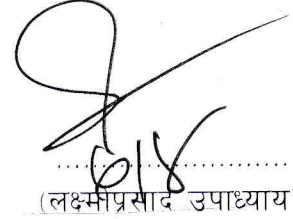 ..........................
(लक्ष्मीप्रसाद उपाध्याय